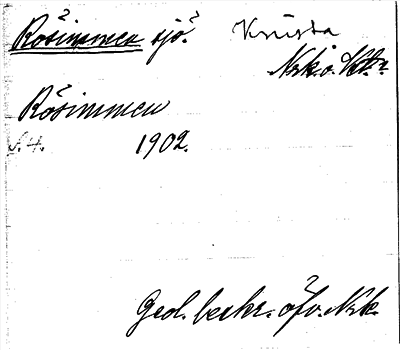 Rösimmen sjö? Knista
Nrk o. Kt. r
Rösimmen
S. 4. 1902.
Geol. beskr. öfv. Nrk.